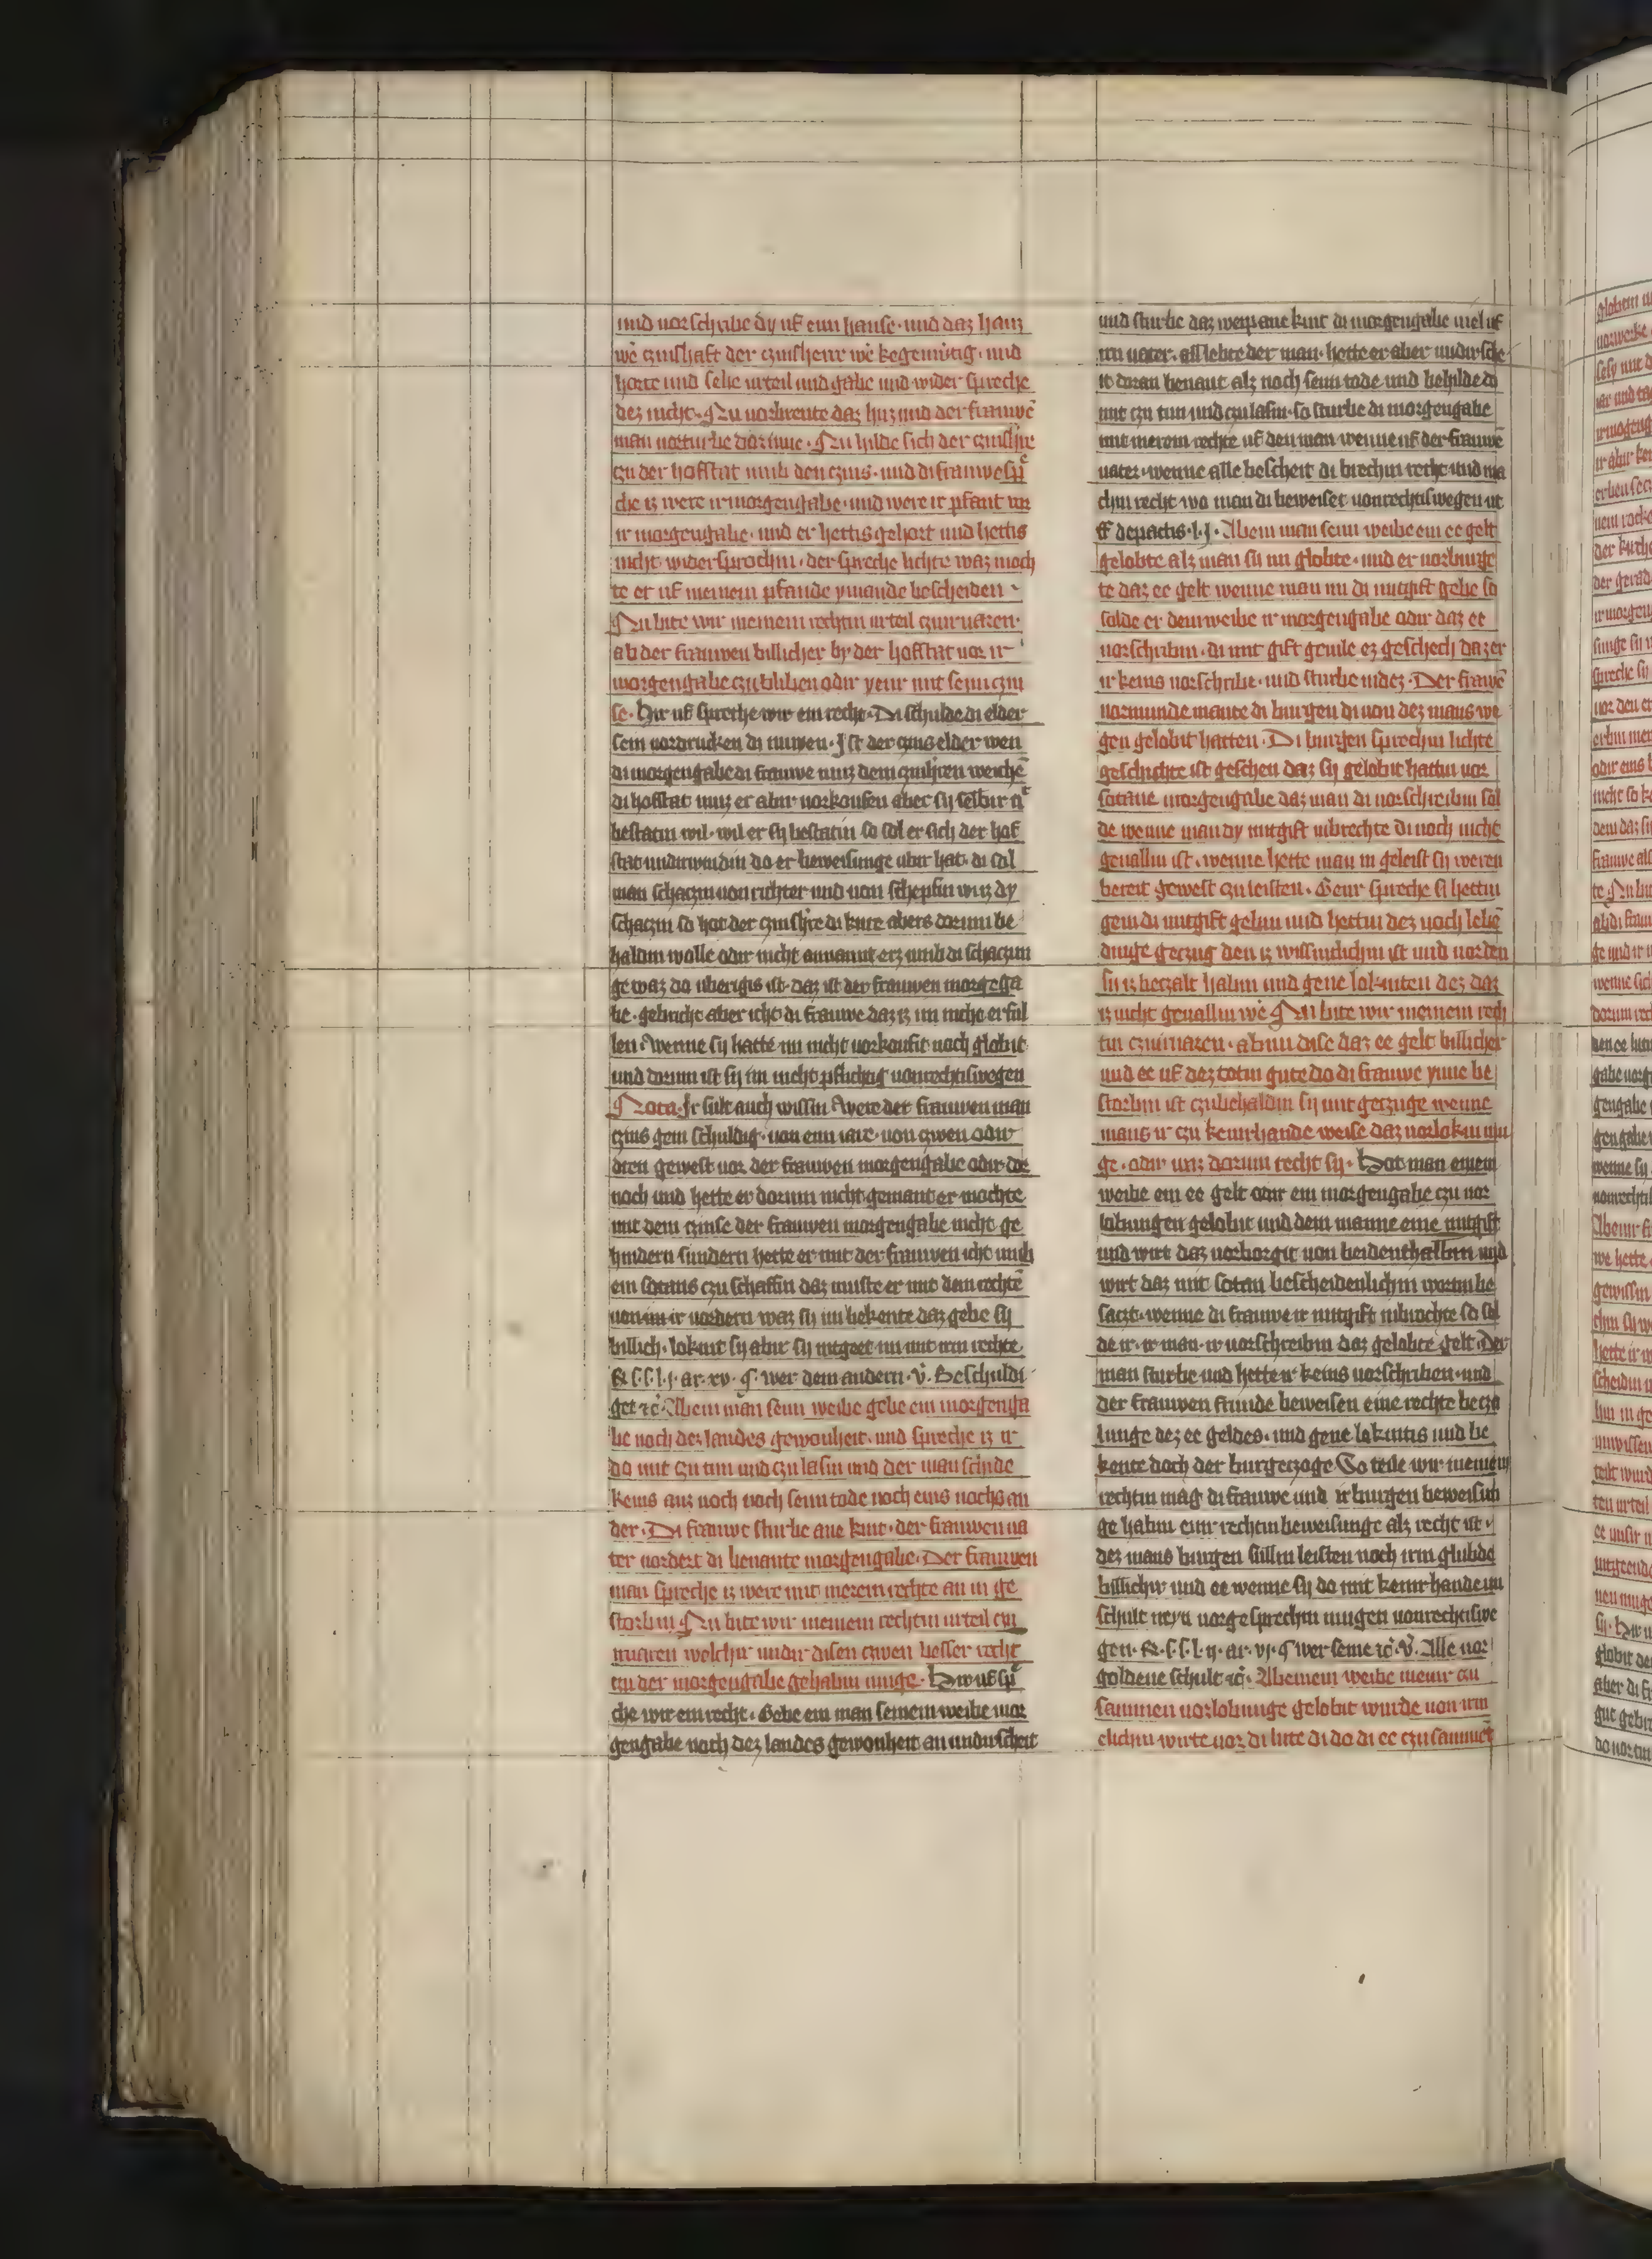 und vorschribe dy uf eym hause · und daz haus
wē czinshaft der czinsherre wē kegenw̄tig · und
horte und sehe urteil und gabe und wider spreche
dez nicht · Nu vorbrente daz hus und der frauwē
man vorturbe dorinne · Nu hilde sich der czinshrre
czu der hofstat umb den czins · und di frauwe sp̄
che is were ir morgengabe · und were ir pfant vor
ir morgengabe · und er hettis gehort und hettis
nicht widersprochin · der spreche lichte waz moch
te er uf meinem pfande ymande bescheiden ·
Nu bite wir meinem rechtin urteil czuirvaren ·
ab der frauwen billicher by der hofstat vor ir
morgengabe czu bliben odir yenir mit seim czin
se · Hir uf spreche wir ein recht · Di schulde di elder
sein vordrucken di nuwen · Ist der czins elder wen
di morgengabe di frauwe muz dem czinshrren weichē
di hofstat muz er abir vorkoufen aber sy selbir
bestatin wil · wil er sy bestatin so sol er sich der hof
stat undirwindin do er beweisunge ubir hat · di sal
man schaczin von richter und von schepfin wirz dy
schaczin so hat der czinshrre di kure abers dorumb be
haldin wolle odir nicht annamt erz umb di schaczun
ge waz do uberigis ist · daz ist der frauwen morgēga
be · gebricht aber icht di frauwe daz is im nicht erful
len · wenne sy hatte im nicht vorkoufit noch globit
und dorum ist sy im nicht pflichtig von rechtiswegen
Nota · Ir sult auch wissin were der frauwen man
czins gem schuldig · von eim iare · von czwen odir
dren gewest vor der frauwen morgengabe odir dor
noch und hette er dorum nicht gemant er mochte
mit dem czinse der frauwen morgengabe nicht ge
hindern sundern hette er mit der frauwen icht umb
ein sotans czu schaffin daz muste er mit dem rechtē
von im ir vordern waz sy im bekente daz gebe sy
billich · lokint sy abir sy intgeet im mit irm rechte
R · s · s · l · j · ar · xv · q · wer dem andern · v̄ · Beschuldi
get rc̄ · Ab ein man seim weibe gebe ein morgenga
be noch dez landes gewonheit · und spreche is ir
do mit czu tun und czu lasin und der man schide
keins aus noch noch seim tode noch eins noch san
der · Di frauwe sturbe ane kint · der frauwen va
ter vordert di benante morgengabe · Der frauwen
man spreche is were mit merem rechte an in ge
storbin Nu bite wir meinem rechtin urteil czu
irvaren welchir undir disen czwen besser recht
czu der morgengabe gehabin muge · Hir uf sp̄
che wir ein recht · Gebe ein man seinem weibe mor
gengabe noch dez landes gewonheit an undirscheit
und sturbe daz weip ane kint di morgengabe viel uf
irn vater · als lebte der man · hette er aber undirsche
it doran benant alz noch seim tode und behilde do
mit czu tun und czu lasin · so sturbe di morgengabe
mit merem rechte uf den man wenne uf der frauwē
vater · wenne alle bescheit di brechin recht und ma
chin recht wo man di beweiset von rechtiswegen ut
ff de pactis · l · j · Ab ein man seim weibe ein ee gelt
gelobte alz man sy im globte · und er vorburge
te daz ee gelt wenne man im di mitgift gebe so
solde er dem weibe ir morgengabe odir daz ee
vorschribin · di mit gift geuile ez geschech daz er
ir keins vorschribe · und sturbe indez · Der frauwē
vormunde mante di burgen di von dez mans we
gen gelobit hatten · Di burgen sprechin lichte
geschichte ist geschen daz sy gelobit hattin vor
sotane morgengabe daz man di vorschreibin sol
de wenne man dy mitgift inbrechte di noch nicht
geuallin ist · wenne hette man in geleist sy weren
bereit gewest czu leisten · Genir spreche si hettin
gem di mitgift gebin und hettin dez noch lebē
dinge geczug den is wissintlichin ist und vor den
sy is beczalt habin und gene lokinten dez daz
is nicht geuallin wē Nu bite wir meinem rech
tin czuirvaren · ab nu dise daz ee gelt billicher
und ee uf dez totin gute do di frauwe ynne be
storbin ist czu behaldin sy mit geczuge wenne
mans ir czu keinirhande weise daz vorlokin mu
ge · odir waz dorum recht sy · Hot man einem
weibe ein ee gelt odir ein morgengabe czu vor
lobungen gelobit und dem manne eine mitgift
und wirt daz vorborgit von beidenthalbin und
wirt daz mit sotan bescheidenlichin wortin be
sact · wenne di frauwe ir mitgift inbrochte so sol
de ir · ir man · ir vorschreibin daz gelobte gelt · der
man sturbe und hette ir keins vorschriben · und
der frauwen frunde beweisen eine rechte becza
lunge dez ee geldes · und gene lokintis und be
kente doch der burgeczoge So teile wir meinem
rechtin mag di frauwe und ir burgen beweisun
ge habin eynir rechtin beweisunge alz recht ist ·
dez mans burgen sullin leisten noch irm glubde
billichir und ee wenne sy do mit keinirhande un
schult neyn vorgesprechin mugen von rechtiswe
gen · R · s · s · l · ij · ar · vj · q wer seine rc̄ · v̄ · Alle vor
goldene schult rc̄ · Ab einem weibe meinir czu
sammen vorlobunge gelobit wurde von irm
elichin wirte vor di lute di do di ee czu sammē